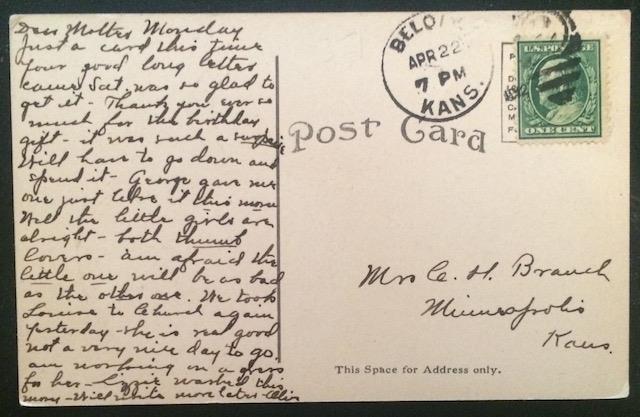 Dear Mother Monday
Just a card this time
your good long letter
came Sat. was so glad to
get it - Thank you ever so
much for the birthday
gift - it was such a surprise
Will have to go down and
spend it - George gave me
one just like it this morn
Well the little girls are
alright - both thumb
lovers - am afraid the
little one will be as bad
as the other one. We took
Louise to Church again
yesterday - she is real good
not a very nice day to go.
am working on a dress
for her - Lizzie washed this
morn - Will write more later -
BELOIT
APR 22
7 PM
KANS.
U.S. POSTAGE
ONE CENT
Post Card
Mrs C. H. Branch
Minneapolis
Kans.
This Space for Address only.